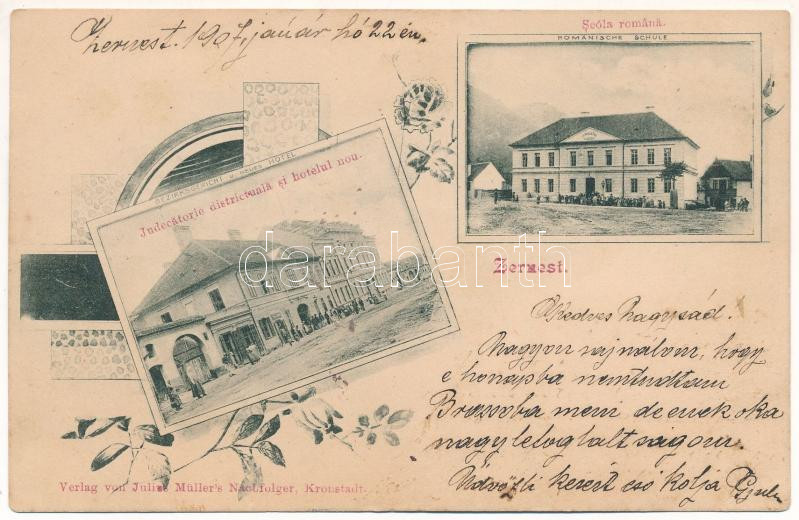 Zernest. 1907, január hó 22 én,
Şcóla română.
ROMÄNISCHE SCHULE
BEZIRKSGERICHT U. NEUES HOTEL
Judecătorie districtuală şi hotelul nou.
darabanth
Zernest.
Kedves Nagysád.
Nagyon sajnálom, hogy
e honapba nemtudtam
Brassoba meni de enek oka
nagy lefoglaltságom.
Üdvözli kezeit csókolja Gyula
Verlag von Julius Müller's Nachfolger, Kronstadt.